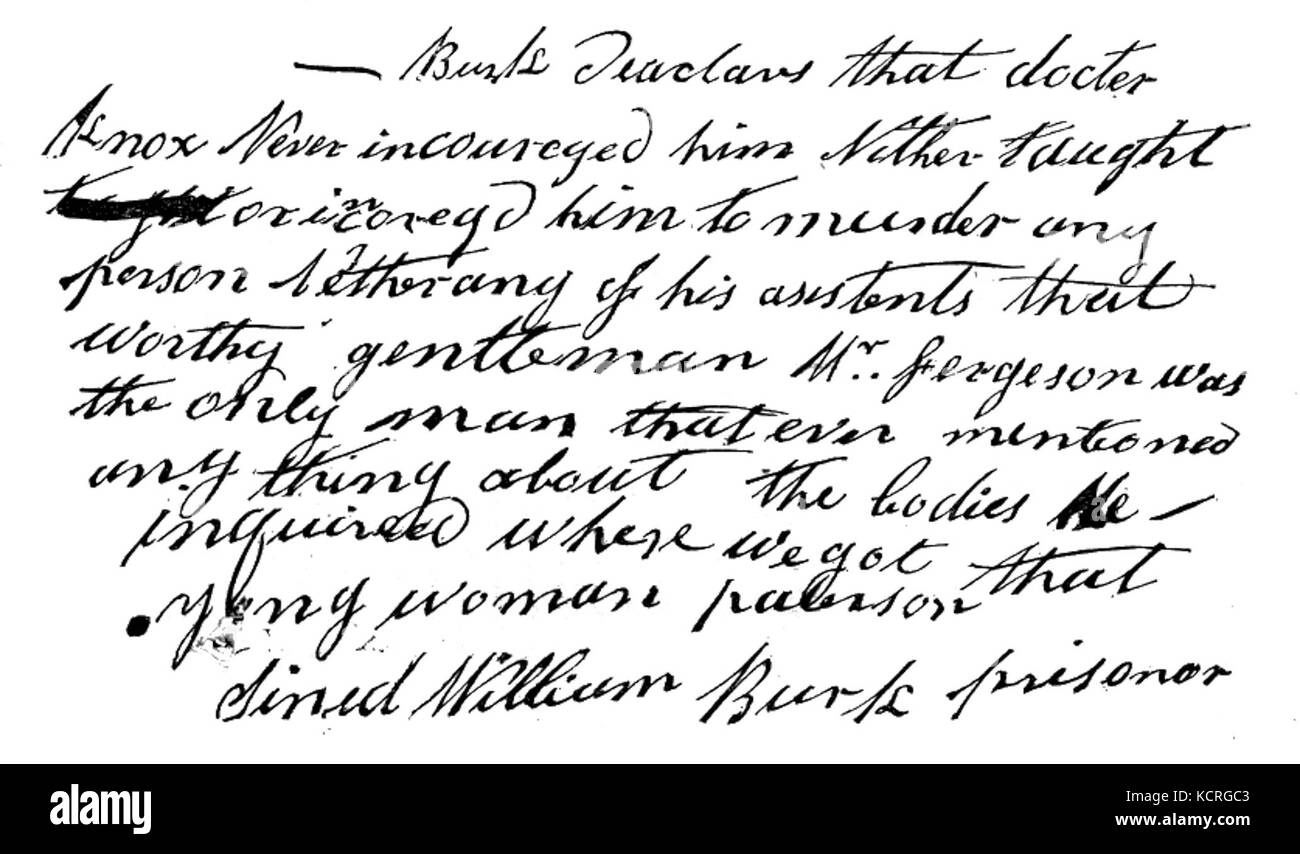 — Burk deaclars that docter
Knox Never incoureged him Nither taught
or incoregd him to murder any
person Nether any of his asistents that
worthy gentleman Mr. Fergeson was
the only man that ever mentioned
any thing about the bodies He —
inquired where we got that
yong woman paterson
Sined William Burk prisonor
a alamy stock photo
alamy
Image ID: KCRGC3
www.alamy.com